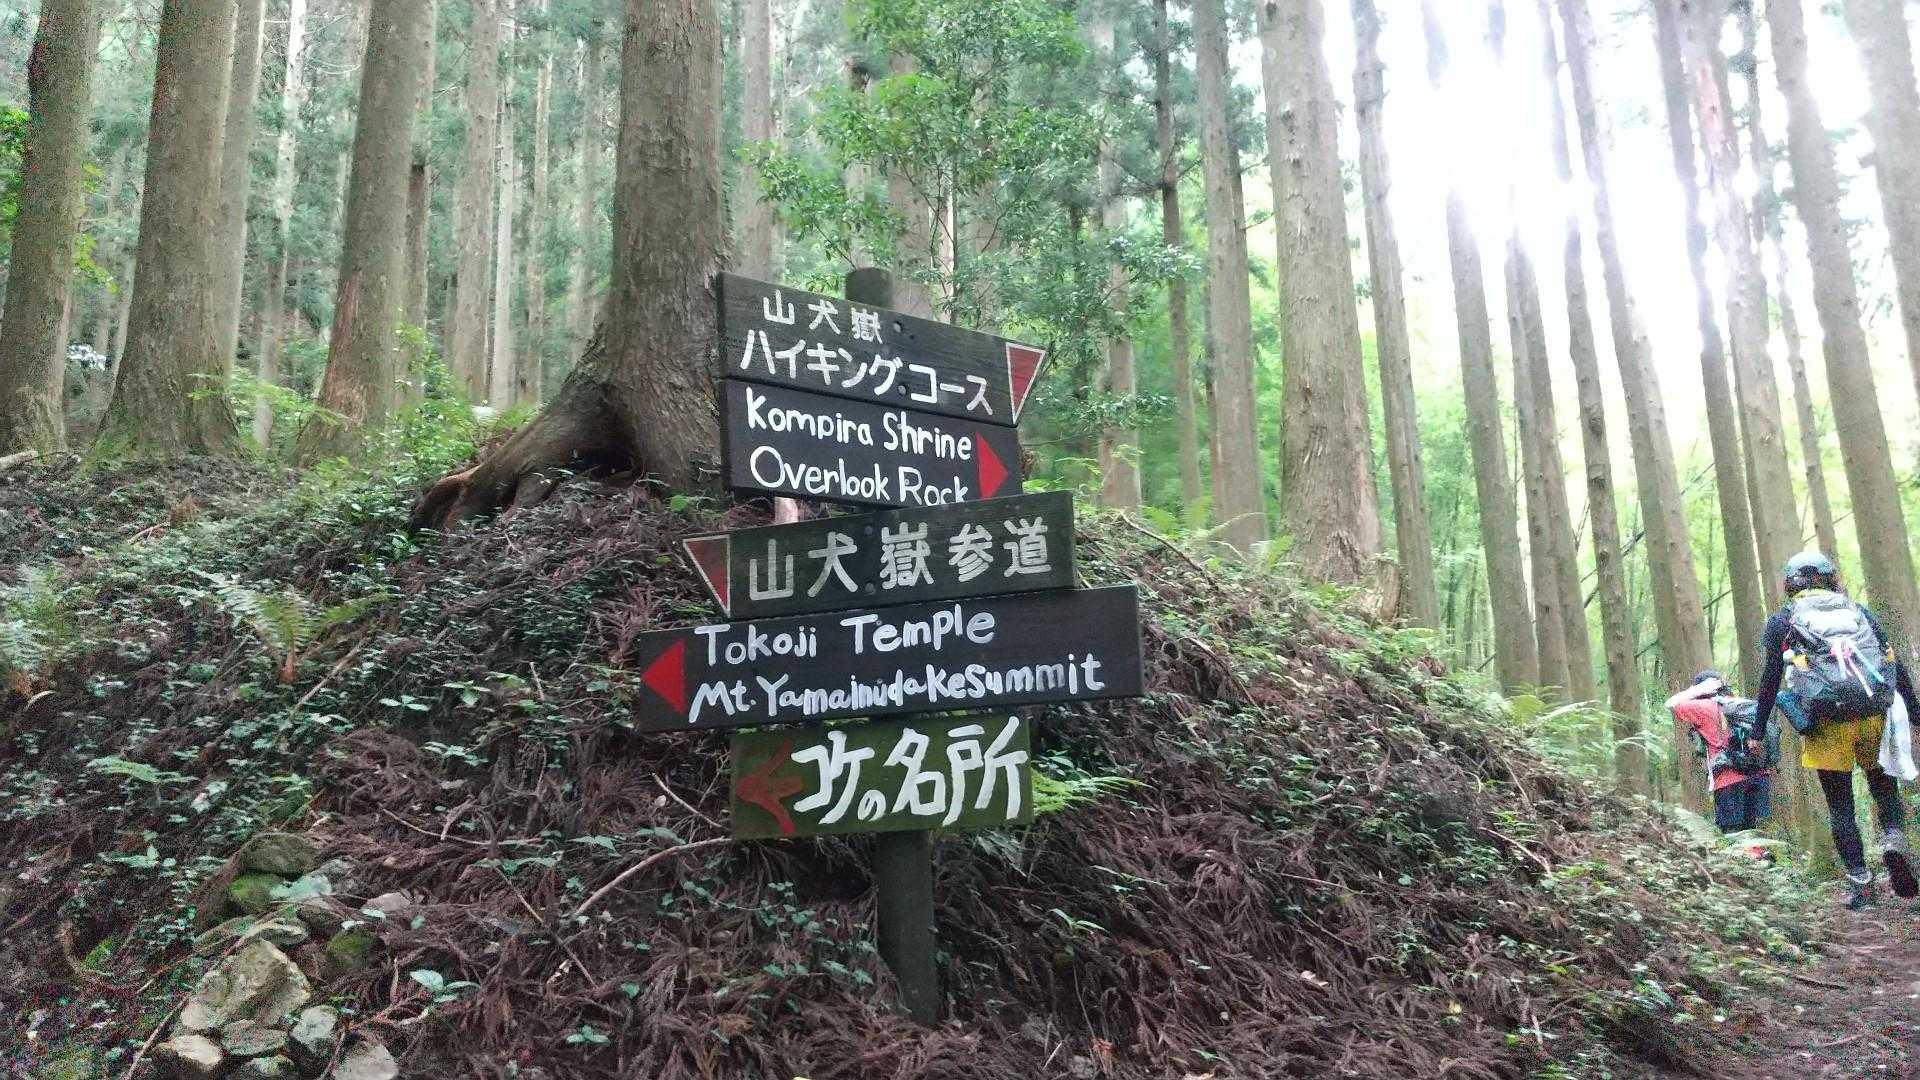 山犬嶽
ハイキング・コース
Kompira Shrine
Overlook Rock
山犬嶽参道
Tokoji Temple
Mt. Yamainudake Summit
コケの名所